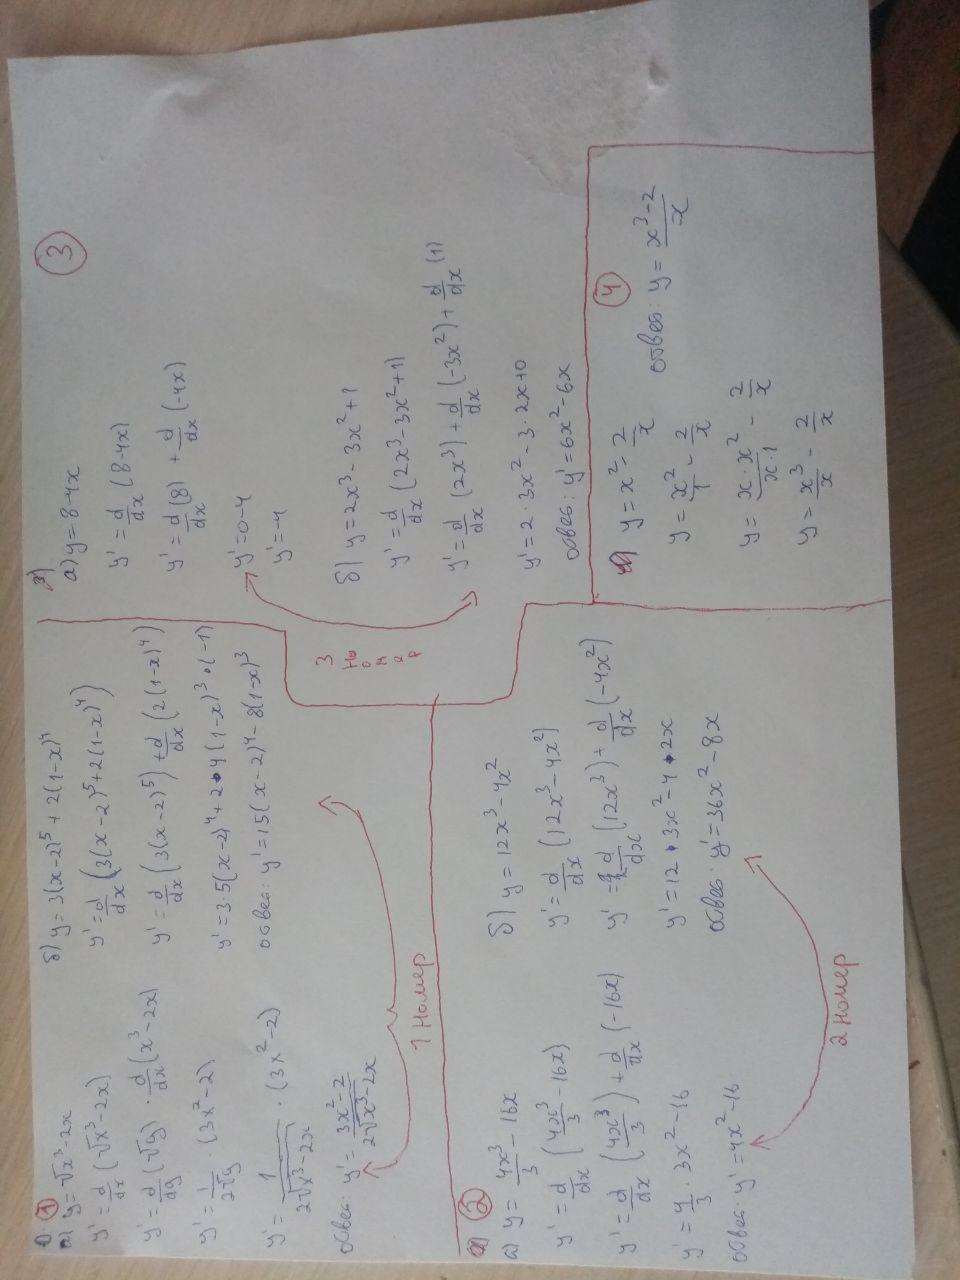 1) ①
а) y = √x³-2x
y' = d/dx (√x³-2x)
y' = d/dg (√g) · d/dx (x³-2x)
y' = 1/2√g · (3x²-2)
y' = 1/2√x³-2x · (3x²-2)
ответ: y' = 3x²-2/2√x³-2x
б) y = 3(x-2)⁵ + 2(1-x)⁴
y' = d/dx (3(x-2)⁵+2(1-x)⁴)
y' = d/dx (3(x-2)⁵) + d/dx (2(1-x)⁴)
y' = 3·5(x-2)⁴+2·4(1-x)³·(-1)
ответ: y' = 15(x-2)⁴-8(1-x)³
1 Номер
②
а) y = 4x³/3 - 16x
y' = d/dx (4x³/3 - 16x)
y' = d/dx (4x³/3) + d/dx (-16x)
y' = 4/3 · 3x²-16
ответ: y' = 4x²-16
б) y = 12x³-4x²
y' = d/dx (12x³-4x²)
y' = d/dx (12x³) + d/dx (-4x²)
y' = 12·3x²-4·2x
ответ: y' = 36x²-8x
2 Номер
3) ③
а) y = 8-4x
y' = d/dx (8-4x)
y' = d/dx (8) + d/dx (-4x)
y' = 0-4
y' = -4
б) y = 2x³-3x²+1
y' = d/dx (2x³-3x²+1)
y' = d/dx (2x³) + d/dx (-3x²) + d/dx (1)
y' = 2·3x²-3·2x+0
ответ: y' = 6x²-6x
3
Номер
④
y = x² - 2/x
y = x²/1 - 2/x
y = x·x²/x·1 - 2/x
y = x³/x - 2/x
ответ: y = x³-2/x